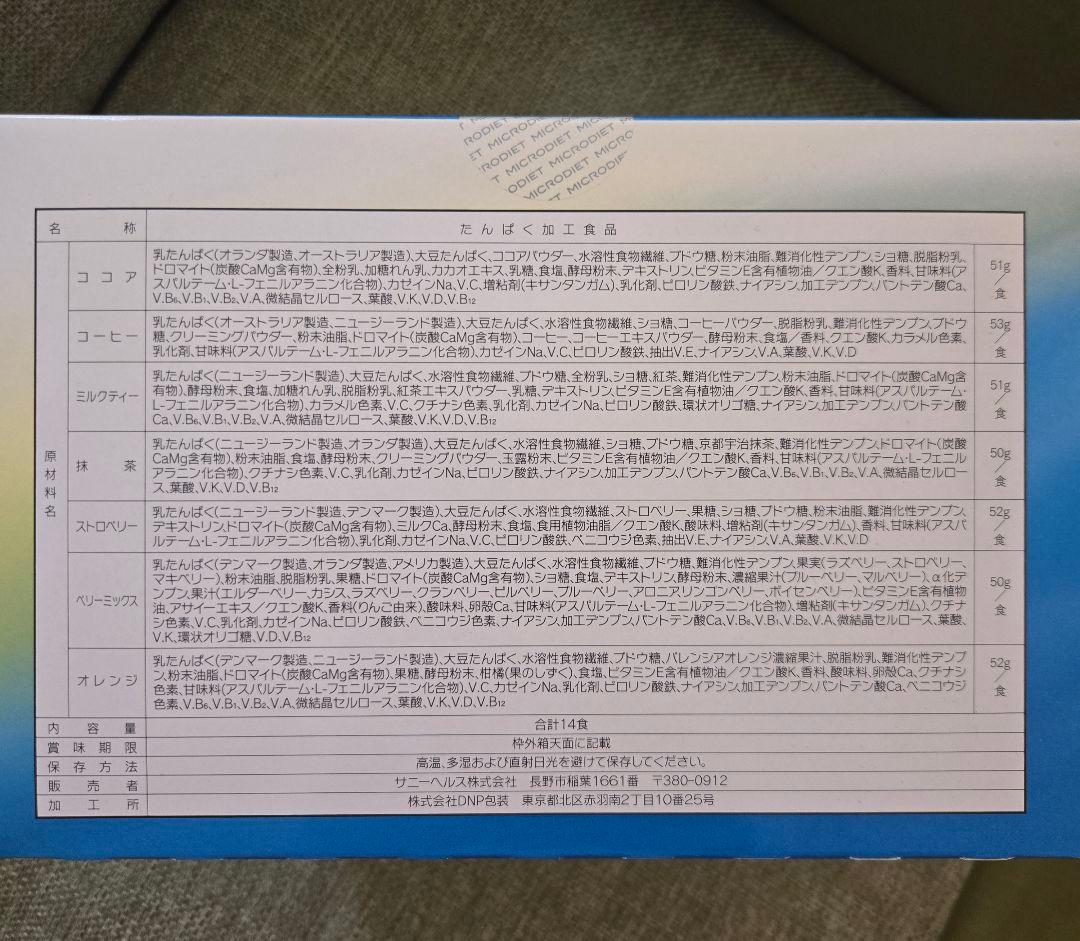 MICRODIET MICRODIET MICRODIET
名称 たんぱく加工食品
原材料名
ココア
乳たんぱく(オランダ製造、オーストラリア製造)、大豆たんぱく、ココアパウダー、水溶性食物繊維、ブドウ糖、粉末油脂、難消化性デンプン、ショ糖、脱脂粉乳、
ドロマイト(炭酸CaMg含有物)、全粉乳、加糖れん乳、カカオエキス、乳糖、食塩、酵母粉末、デキストリン、ビタミンE含有植物油/クエン酸K、香料、甘味料(ア
スパルテーム・L-フェニルアラニン化合物)、カゼインNa、V.C、増粘剤(キサンタンガム)、乳化剤、ピロリン酸鉄、ナイアシン、加工デンプン、パントテン酸Ca、
V.B₆、V.B₁、V.B₂、V.A、微結晶セルロース、葉酸、V.K、V.D、V.B₁₂
51g/食
コーヒー
乳たんぱく(オーストラリア製造、ニュージーランド製造)、大豆たんぱく、水溶性食物繊維、ショ糖、コーヒーパウダー、脱脂粉乳、難消化性デンプン、ブドウ
糖、クリーミングパウダー、粉末油脂、ドロマイト(炭酸CaMg含有物)、コーヒー、コーヒーエキスパウダー、酵母粉末、食塩/香料、クエン酸K、カラメル色素、
乳化剤、甘味料(アスパルテーム・L-フェニルアラニン化合物)、カゼインNa、V.C、ピロリン酸鉄、抽出V.E、ナイアシン、V.A、葉酸、V.K、V.D
53g/食
ミルクティー
乳たんぱく(ニュージーランド製造)、大豆たんぱく、水溶性食物繊維、ブドウ糖、全粉乳、ショ糖、紅茶、難消化性デンプン、粉末油脂、ドロマイト(炭酸CaMg含
有物)、酵母粉末、食塩、加糖れん乳、脱脂粉乳、紅茶エキスパウダー、乳糖、デキストリン、ビタミンE含有植物油/クエン酸K、香料、甘味料(アスパルテーム・
L-フェニルアラニン化合物)、カラメル色素、V.C、クチナシ色素、乳化剤、カゼインNa、ピロリン酸鉄、環状オリゴ糖、ナイアシン、加工デンプン、パントテン酸
Ca、V.B₆、V.B₁、V.B₂、V.A、微結晶セルロース、葉酸、V.K、V.D、V.B₁₂
51g/食
抹茶
乳たんぱく(ニュージーランド製造、オランダ製造)、大豆たんぱく、水溶性食物繊維、ショ糖、ブドウ糖、京都宇治抹茶、難消化性デンプン、ドロマイト(炭酸
CaMg含有物)、粉末油脂、食塩、酵母粉末、クリーミングパウダー、玉露粉末、ビタミンE含有植物油/クエン酸K、香料、甘味料(アスパルテーム・L-フェニル
アラニン化合物)、クチナシ色素、V.C、乳化剤、カゼインNa、ピロリン酸鉄、ナイアシン、加工デンプン、パントテン酸Ca、V.B₆、V.B₁、V.B₂、V.A、微結晶セルロー
ス、葉酸、V.K、V.D、V.B₁₂
50g/食
ストロベリー
乳たんぱく(ニュージーランド製造、デンマーク製造)、大豆たんぱく、水溶性食物繊維、ストロベリー、果糖、ショ糖、ブドウ糖、粉末油脂、難消化性デンプン、
デキストリン、ドロマイト(炭酸CaMg含有物)、ミルクCa、酵母粉末、食塩、食用植物油脂/クエン酸K、酸味料、増粘剤(キサンタンガム)、香料、甘味料(アスパ
ルテーム・L-フェニルアラニン化合物)、乳化剤、カゼインNa、V.C、ピロリン酸鉄、ベニコウジ色素、抽出V.E、ナイアシン、V.A、葉酸、V.K、V.D
52g/食
ベリーミックス
乳たんぱく(デンマーク製造、オランダ製造、アメリカ製造)、大豆たんぱく、水溶性食物繊維、ブドウ糖、難消化性デンプン、果実(ラズベリー、ストロベリー、
マキベリー)、粉末油脂、脱脂粉乳、果糖、ドロマイト(炭酸CaMg含有物)、ショ糖、食塩、デキストリン、酵母粉末、濃縮果汁(ブルーベリー、マルベリー)、α化デ
ンプン、果汁(エルダーベリー、カシス、ラズベリー、クランベリー、ビルベリー、ブルーベリー、アロニア、リンゴンベリー、ボイセンベリー)、ビタミンE含有植物
油、アサイーエキス/クエン酸K、香料(りんご由来)、酸味料、卵殻Ca、甘味料(アスパルテーム・L-フェニルアラニン化合物)、増粘剤(キサンタンガム)、クチナ
シ色素、V.C、乳化剤、カゼインNa、ピロリン酸鉄、ベニコウジ色素、ナイアシン、加工デンプン、パントテン酸Ca、V.B₆、V.B₁、V.B₂、V.A、微結晶セルロース、葉酸、
V.K、環状オリゴ糖、V.D、V.B₁₂
50g/食
オレンジ
乳たんぱく(デンマーク製造、ニュージーランド製造)、大豆たんぱく、水溶性食物繊維、ブドウ糖、バレンシアオレンジ濃縮果汁、脱脂粉乳、難消化性デンプ
ン、粉末油脂、ドロマイト(炭酸CaMg含有物)、果糖、酵母粉末、柑橘(果のしずく)、食塩、ビタミンE含有植物油/クエン酸K、香料、酸味料、卵殻Ca、クチナシ
色素、甘味料(アスパルテーム・L-フェニルアラニン化合物)、V.C、カゼインNa、乳化剤、ピロリン酸鉄、ナイアシン、加工デンプン、パントテン酸Ca、ベニコウジ
色素、V.B₆、V.B₁、V.B₂、V.A、微結晶セルロース、葉酸、V.K、V.D、V.B₁₂
52g/食
内容量 合計14食
賞味期限 枠外箱天面に記載
保存方法 高温、多湿および直射日光を避けて保存してください。
販売者 サニーヘルス株式会社 長野市稲葉1661番 〒380-0912
加工所 株式会社DNP包装 東京都北区赤羽南2丁目10番25号